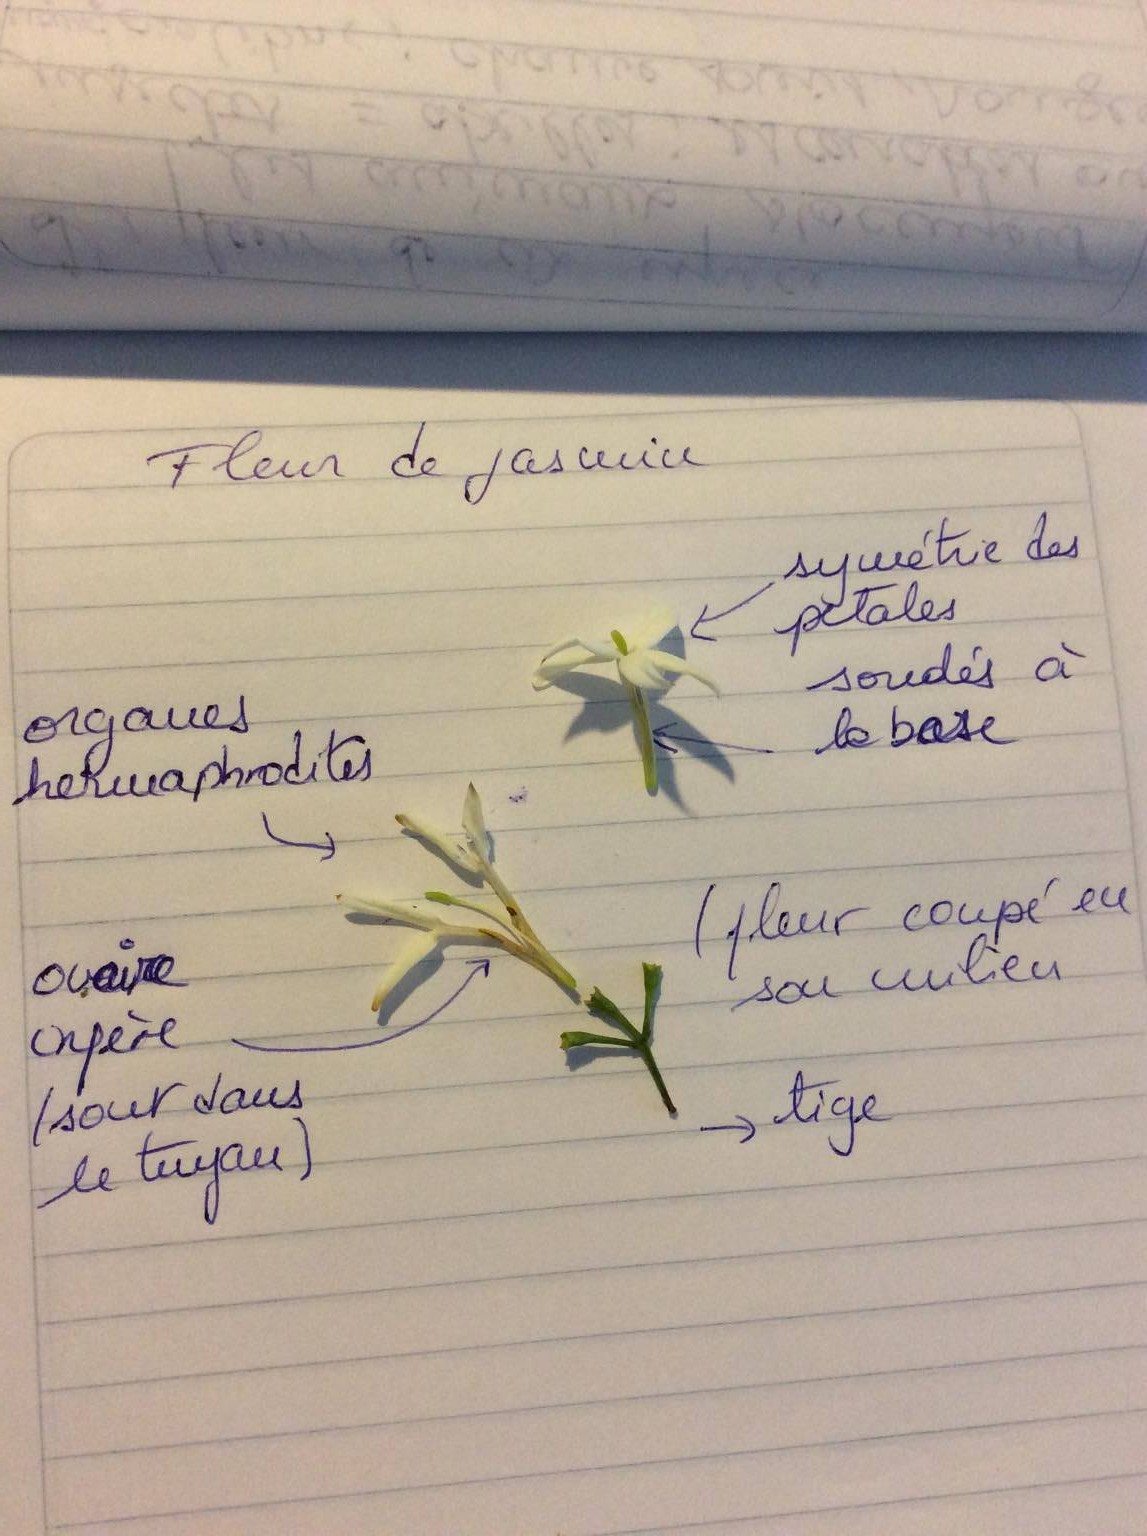 Fleur de jasmin
symétrie des
pétales
soudés à
la base
organes
hermaphrodites
(fleur coupé en
son milieu
ovaire
infère
(sont dans
le tuyau)
tige